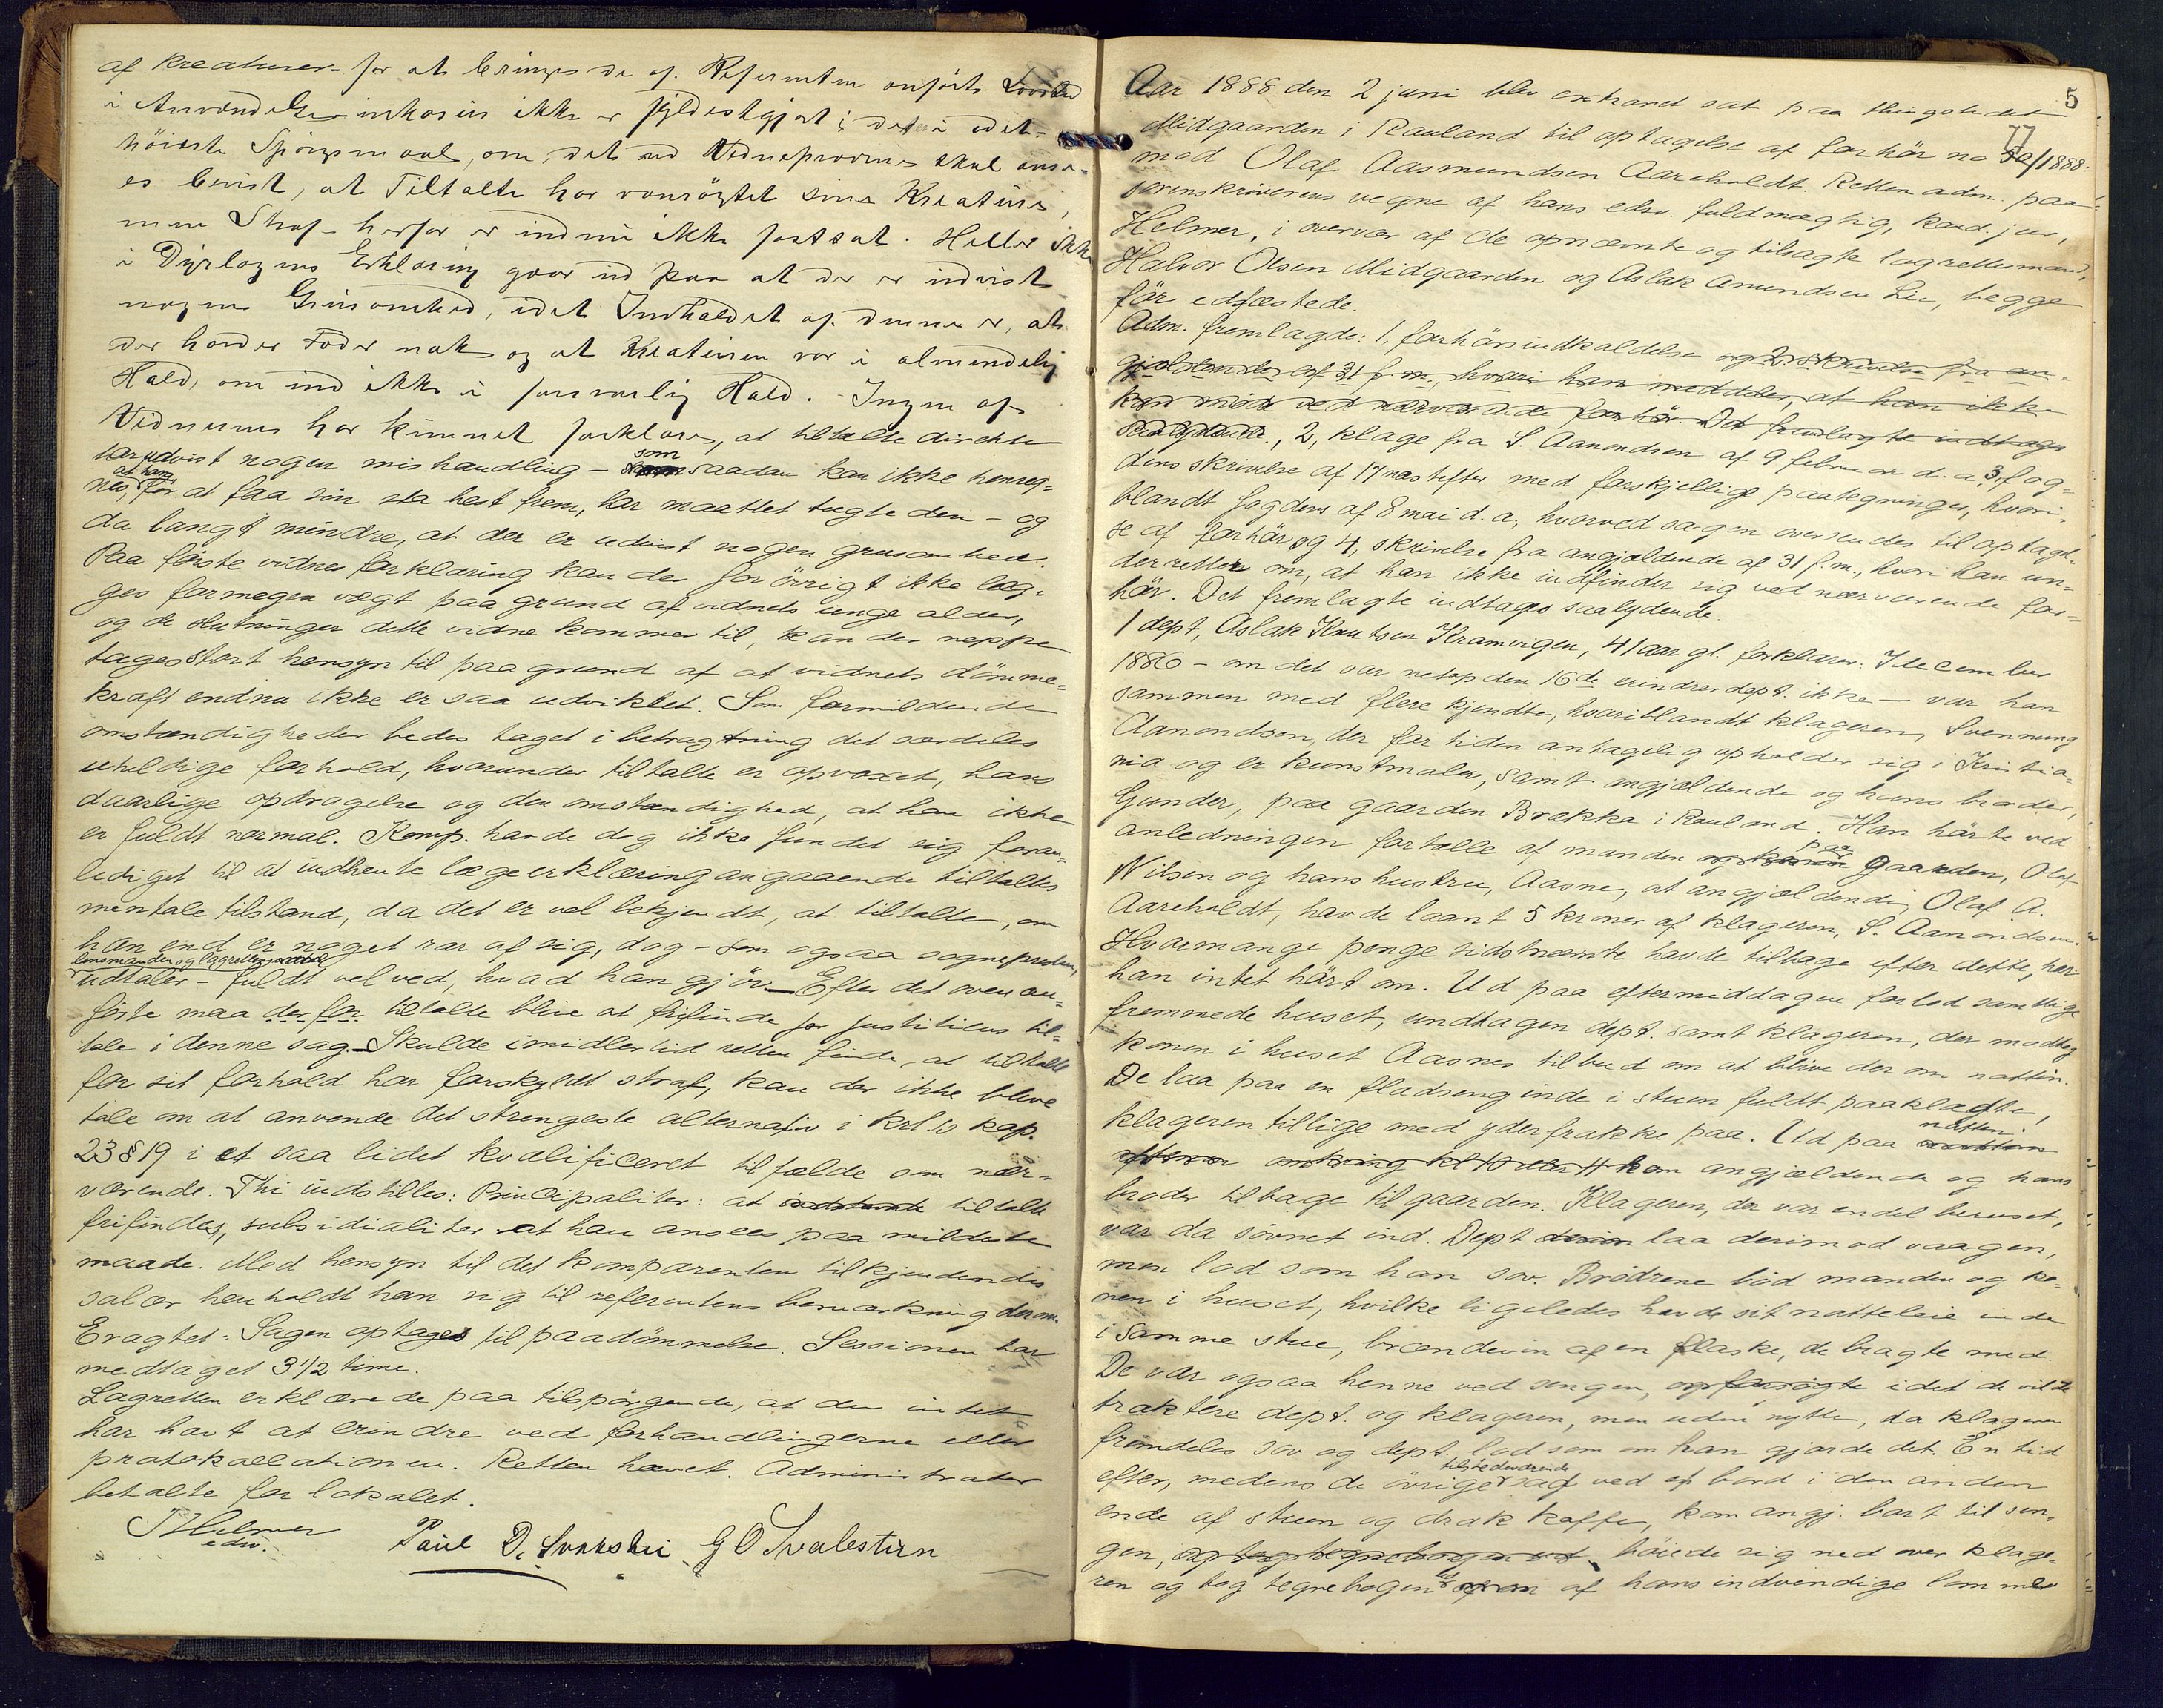 af Kreaturer for at bringes de af Referenten anførte Lovsted
i Anvendelse inkasius ikke er fyldestgjort; det i det
höieste Spörgsmaal, om, det ved Vidneprovene skal anse-
es bevist, at Tiltalte har vanrögtet sine Kreaturer,
men Straf herfor er endnu ikke fastsat. Heller ikke
i Dyrlægens Erklæring gaar ud paa at der er udvist
nogen Grusomhed, idet Indholdet af denne er, at
der havdes Foder nok og at Kreaturene var i almindelig
Hold, om end ikke i forsvarlig Hold. Ingen af
Vidnerne har kunnet forklare, at tiltalte direkte
har udvist nogen mishandling – som saadan kan ikke henreg-
nes, at han for at faa sin sta hest frem, har maattet tugte den – og
da langt mindre, at der er udvist nogen grusomhed.
Paa förste vidnes forklaring kan der for övrigt ikke læg-
ges formegen vægt paa grund af vidnets unge alder,
og de slutninger dette vidne kommer til, kan der neppe
tages stort hensyn til paa grund af at vidnets dömme-
kraft endnu ikke er saa udviklet. Som formildende
omstændigheder bedes taget i betragtning det særdeles
uheldige forhold, hvorunder tiltalte er opvoxet, hans
daarlige opdragelse og den omstændighed, at han ikke
er fuldt normal. Komp. havde dog ikke fundet sig foran-
lediget til at indhente lægeerklæring angaaende tiltaltes
mentale tilstand, da det er vel bekjendt, at tiltalte, om
han end er noget rar af sig, dog – som ogsaa sognepresten,
lensmanden og lagrettens
udtaler – fuldt vel ved, hvad han gjör. – Efter det oven an-
förte maa derfor tiltalte blive at frifinde for justitiens til-
tale i denne sag. – Skulde imidlertid retten finde, at tiltalte
for sit forhold har forskyldt straf, kan der ikke blive
tale om at anvende det strengeste alternativ i krl.s kap.
23 § 19 i et saa lidet kvalificeret tilfælde som nær-
værende. Thi indstilles: Principaliter: at tiltalte
frifindes, subsidialiter at han ansees paa mildeste
maade. Med hensyn til det komparenten tilkjendendes
salær henholdt han sig til referentens bemærkning derom.
Eragtet: Sagen optages til paadömmelse. Sessionen har
medtaget 3 1/2 time.
Lagretten erklærede paa tilspörgende, at den intet
har havt at erindre ved forhandlingerne eller
protokollationen. Retten hævet. Administrator
betalte for lokalet.
J Helmer Paul D. Svarstei G O Svalestuen
edsv.
5
Aar 1888 den 2 juni blev extraret sat paa thingstedet
Midgaarden i Rauland til optagelse af forhör no 77/1888:
mod Olaf Aasmundsen Aareholdt. Retten adm. paa
sorenskriverens vegne af hans edsv. fuldmægtig, kand. jur.
Helmer, i overvær af de opnævnte og tilsagte lagrettesmænd,
Halvor Olsen Midgaarden og Aslak Amundsen Lie, begge
för edfæstede.
Adm. fremlagde: 1, forhörsindkaldelse og 2, skrivelse fra an-
gjældende af 31 f.m., hvori han meddeler, at han ikke
kan möde ved nærværende forhör. Det fremlagte indtages
saalydende., 2, klage fra S. Aanondsen af 9 februar d.a., 3, fog-
dens skrivelse af 17 næstefter med forskjellige paategninger, hvori-
blandt fogdens af 8 mai d.a., hvorved sagen oversendes til optagel-
se af forhör og 4, skrivelse fra angjældende af 31 f.m., hvori han un-
derretter om, at han ikke indfinder sig ved nærværende for-
hör. Det fremlagte indtages saalydende.
1 dept, Aslak Knutsen Kramvigen, 41 aar gl. forklarer: I december
1886 – om det var netop den 16de erindrer dept. ikke – var han
sammen med flere kjendte, hvoriblandt klageren, Svennung
Aanondsen, der for tiden antagelig opholder sig i Kristia-
nia og er kunstmaler, samt angjældende og hans broder,
Gunder, paa gaarden Brække i Rauland. Han hörte ved
anledningen fortælle af manden paa gaarden, Olaf
Nilsen og hans hustru, Aasne, at angjældende, Olaf A.
Aareholdt, havde laant 5 kroner af klageren, S. Aanondsen.
Hvormange penge sidstnævnte havde tilbage efter dette, har
han intet hört om. Ud paa eftermiddagen forlod samtlige
fremmede huset, undtagen dept. samt klageren, der modtog
konen i huset Aasnes tilbud om at blive der om natten.
De laa paa en fladseng inde i stuen fuldt paaklædte,
klageren tillige med yderfrakke paa. Ud paa natten
omkring kl 10 eller 11 kom angjældende og hans
broder tilbage til gaarden. Klageren, der var endel beruset,
var da sövnet ind. Dept laa derimod vaagen,
men lod som han sov. Brödrene böd manden og ko-
nen i huset, hvilke ligeledes havde sit natteleie inde
i samme stue, brændevin af en flaske, de bragte med.
De var ogsaa henne ved sengen, idet de vilde
traktere dept. og klageren, men uden nytte, da klageren
fremdeles sov og dept. lod som om han gjorde det. En tid
efter, medens de övrige tilstedeværende sad ved et bord i den anden
ende af stuen og drak kaffe, kom angj. bort til sen-
gen, böiede sig ned over klage-
ren og tog tegnebogen ud af hans indvendige lomme